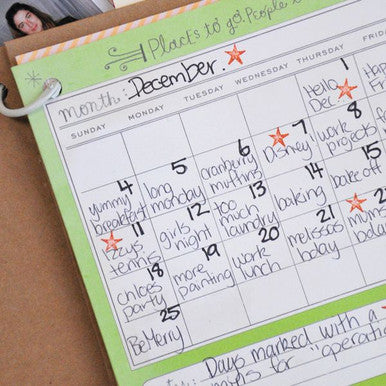 Places to go, People
month: December.
SUNDAY MONDAY TUESDAY WEDNESDAY THURSDAY FRIDAY
1
Hello
Dec
4 5 6 7 8
yummy breakfast
long monday
cranberry muffins
Disney
work projects
11 12 13 14 15
Izzys tennis
girls night
too much laundry
baking
bake off
18 19 20 21
chloes party
more painting
work lunch
melissas bday
bday
25
Be Merry
Days marked with a
for "operation